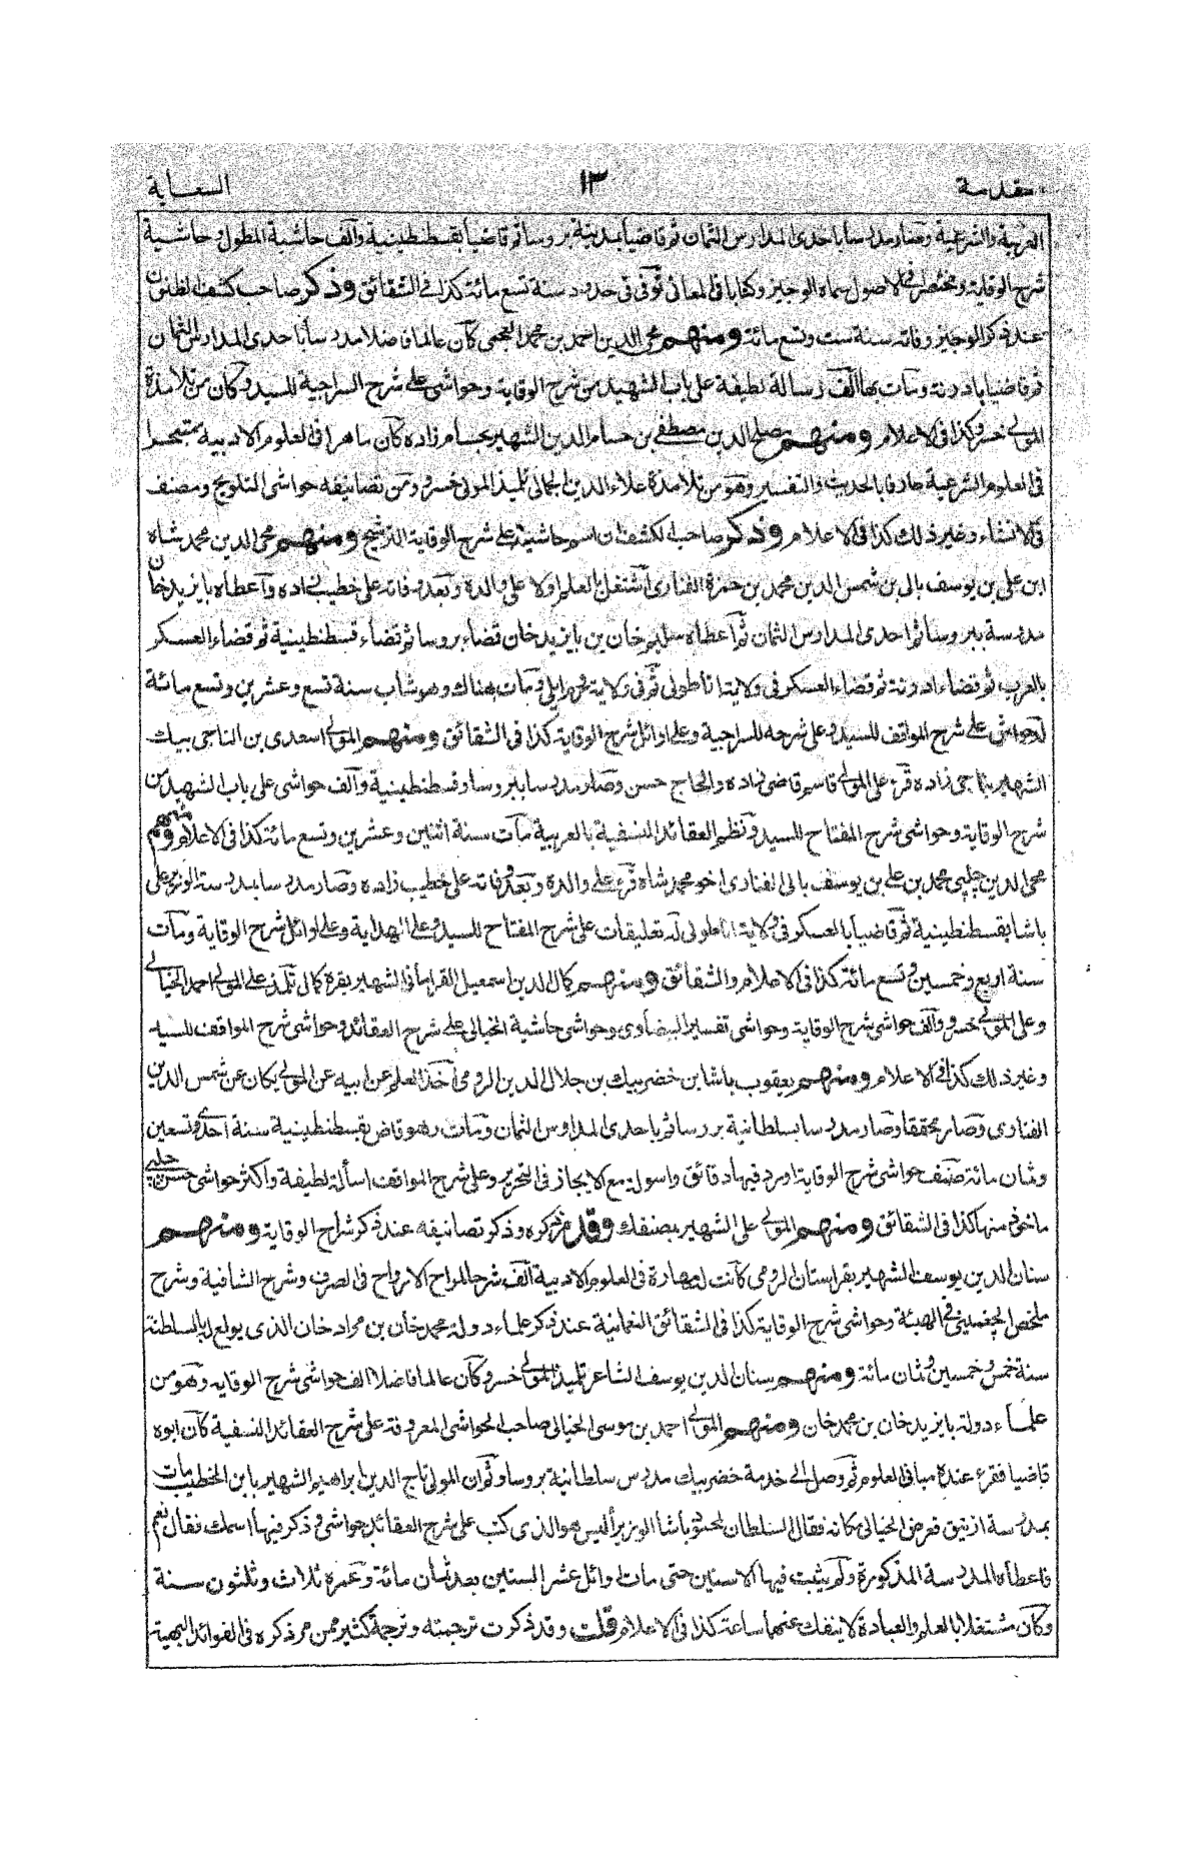 مقدمة ١٣ السعاية
العربية والشرعية وصار مدرسا باحدى المدارس الثمان ثم قاضيا بمدينة بروسا ثم قاضيا بقسطنطينية وآلف حاشية المطول وحاشية
شرح الوقاية ومختصرا فى الاصول سماه الوجيز وكتابا فى المعانى توفى فى حدود سنة تسع مائة كذا فى الشقائق وذكر صاحب كشف الظنون
عند ذكر الوجيز وفاته سنة ست وتسع مائة ومنهم محى الدين احمد بن محمد العجمى كان عالما فاضلا مدرسا باحدى المدارس الثمان
ثم قاضيا بادرنة ومات بها الف رسالة لطيفة على باب الشهيد من شرح الوقاية وحواشى على شرح السراجية للسيد وكان من تلامذة
المولى خسرو كذا فى الاعلام ومنهم مصلح الدين مصطفى بن حسام الدين الشهير بحسام زاده كان ماهرا فى العلوم الادبية متبحرا
فى العلوم الشرعية عارفا بالحديث والتفسير وهو من تلامذة علاء الدين الجمالى تلميذ المولى خسرو ومن تصانيفه حواشى التلويح ومصنف
فى الانشاء وغير ذلك كذا فى الاعلام وذكر صاحب الكشف ان اسم حاشيته على شرح الوقاية التوشيح ومنهم محى الدين محمد شاه
ابن على بن يوسف بالى بن شمس الدين محمد بن حمزة الفنارى اشتغل بالعلم اولا على والده وبعد وفاته على خطيب زاده واعطاه بايزيد خان
مدرسة ببروسا ثم احدى المدارس الثمان ثم اعطاه سليم خان بن بايزيد خان قضاء بروسا ثم قضاء قسطنطينية ثم قضاء العسكر
بالعرب ثم قضاء ادرنة ثم قضاء العسكر فى ولاية اناطولى ثم فى ولاية روم ايلى ومات هناك وهو شاب سنة تسع وعشرين وتسع مائة
له حواشى على شرح المواقف للسيد وعلى شرحه للسراجية وعلى اوائل شرح الوقاية كذا فى الشقائق ومنهم المولى اسعدى بن الناجى بيك
الشهير بناجى زاده قرء على المولى قاسم قاضى زاده والحاج حسن وصار مدرسا ببروسا وقسطنطينية وآلف حواشى على باب الشهيد من
شرح الوقاية وحواشى شرح المفتاح للسيد ونظم العقائد النسفية بالعربية مات سنة اثنين وعشرين وتسع مائة كذا فى الاعلام ومنهم
محى الدين چلپى محمد بن على بن يوسف بالى الفنارى اخو محمد شاه قرء على والده وبعد وفاته على خطيب زاده وصار مدرسا بمدرسة الوزير على
باشا بقسطنطينية ثم قاضيا بالعسكر فى ولاية اناطولى له تعليقات على شرح المفتاح للسيد وعلى الهداية وعلى اوائل شرح الوقاية ومات
سنة اربع وخمسين وتسع مائة كذا فى الاعلام والشقائق ومنهم كمال الدين اسمعيل القرامانى الشهير بقره كمال تلمذ على المولى احمد الخيالى
وعلى المولى خسرو وآلف حواشى شرح الوقاية وحواشى تفسير البيضاوى وحواشى حاشية الخيالى على شرح العقائد وحواشى شرح المواقف للسيد
وغير ذلك كذا فى الاعلام ومنهم يعقوب باشا بن خضر بيك بن جلال الدين الرومى اخذ العلم عن ابيه عن المولى يكان عن شمس الدين
الفنارى وصار محققا وصار مدرسا بسلطانية بروسا ثم باحدى المدارس الثمان ومات وهو قاض بقسطنطينية سنة احدى وتسعين
وثمان مائة صنف حواشى شرح الوقاية اورد فيها دقائق واسولة مع الايجاز فى التحرير وعلى شرح المواقف اسألة لطيفة واكثر حواشى حسن چلپى
ماخوذ منها كذا فى الشقائق ومنهم المولى على الشهير بمصنفك وقد مر ذكره وذكر تصانيفه عند ذكر شراح الوقاية ومنهم
سنان الدين يوسف الشهير بقراسنان الرومى كانت له مهارة فى العلوم الادبية الف شرحا لمراح الارواح فى الصرف وشرح الشافية وشرح
ملخص الچغمينى فى الهيئة وحواشى شرح الوقاية كذا فى الشقائق النعمانية عند ذكر علماء دولة محمد خان بن مراد خان الذى بويع له بالسلطنة
سنة خمس وخمسين وثمان مائة ومنهم سنان الدين يوسف الشاعر تلميذ المولى خسرو كان عالما فاضلا الف حواشى شرح الوقاية وهو من
علماء دولة بايزيد خان بن محمد خان ومنهم المولى احمد بن موسى الخيالى صاحب الحواشى المعروفة على شرح العقائد النسفية كان ابوه
قاضيا فقرء عنده مبانى العلوم ثم وصل الى خدمة خضر بيك مدرس سلطانية بروسا وثم ان المولى تاج الدين ابراهيم الشهير بابن الخطيب مات
بمدرسة ازنيق فعرض الخيالى مكانه فقال السلطان لمحمود باشا الوزير أليس هو الذى كتب على شرح العقائد حواشى وذكر فيها اسمك فقال نعم
فاعطاه المدرسة المذكورة ولم يثبت فيها الا سنين حتى مات اوائل عشر الستين بعد ثمان مائة وعمره ثلاث وثلثون سنة
وكان مشتغلا بالعلم والعبادة لا ينفك عنهما ساعة كذا فى الاعلام قلت وقد ذكرت ترجمته وترجمة كثير ممن مر ذكره فى الفوائد البهية